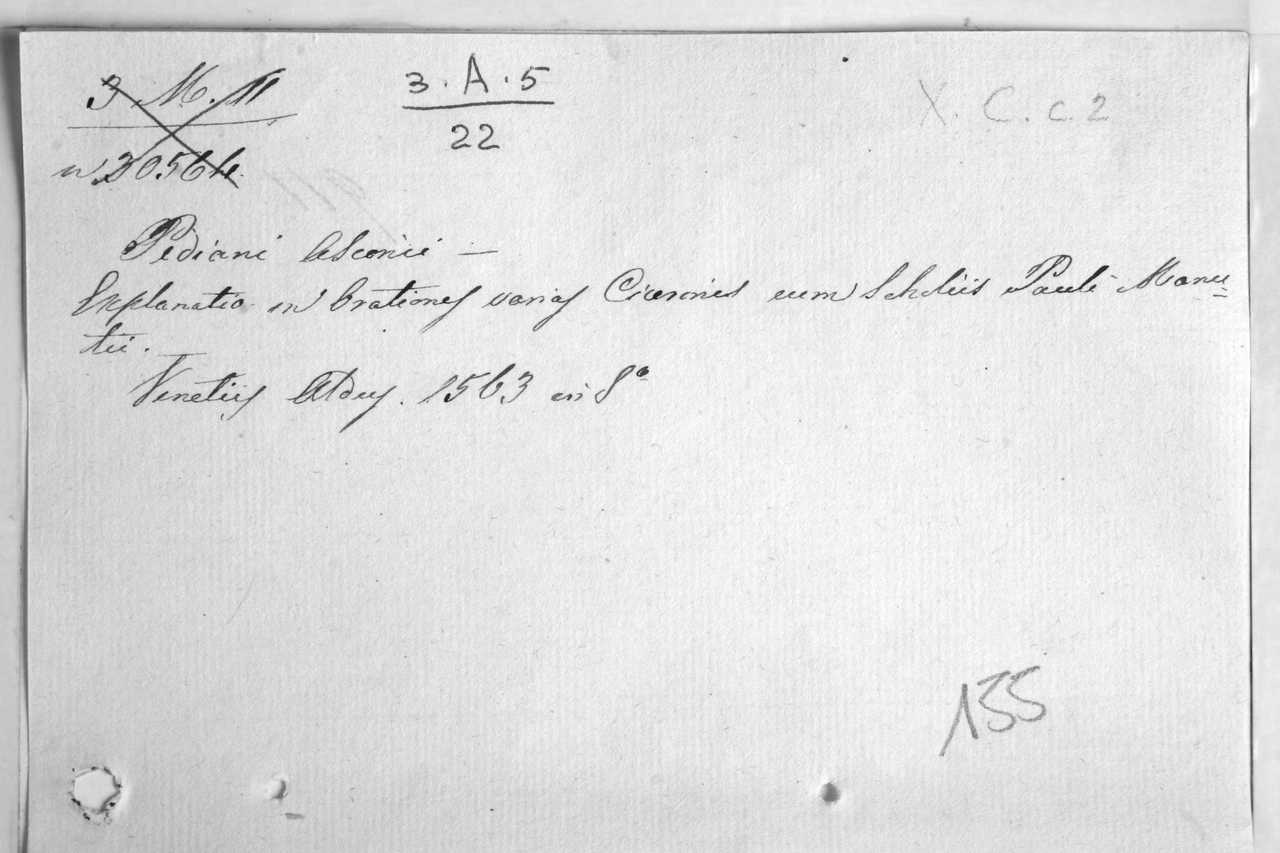 3 M. 11
n 30564.
3. A. 5
22
X. C. c. 2
Pediani Asconii —
Explanatio in Orationes varias Ciceronis cum Scholiis Pauli Manu=
tii.
Venetiis Aldus. 1563 in 8°
155